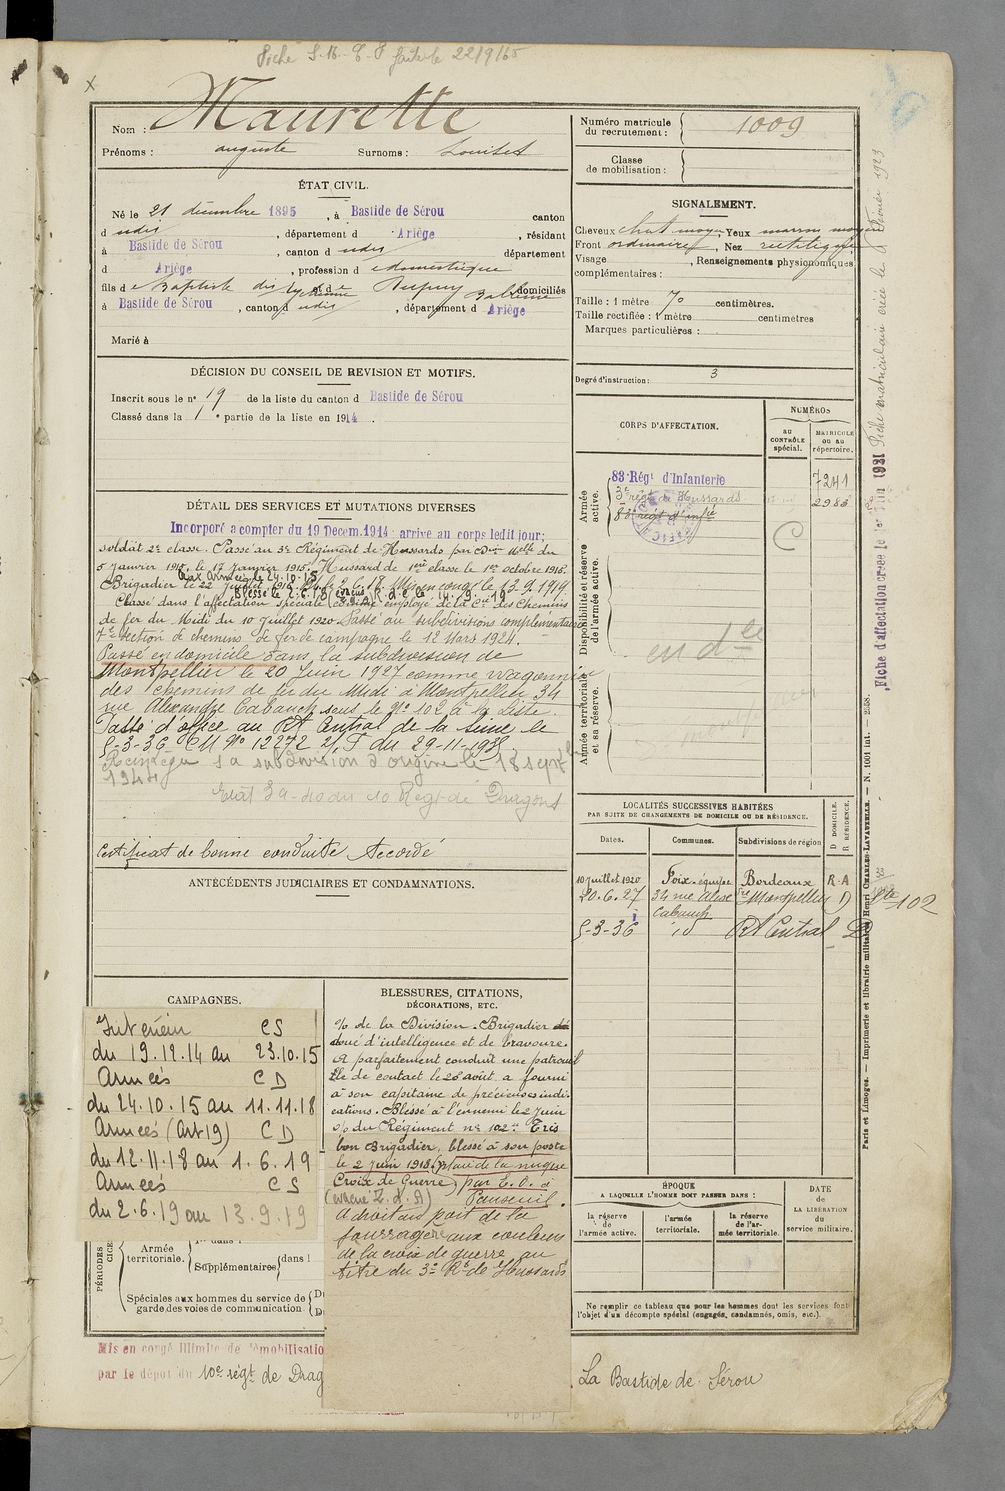 Fiche S.M. faite le 22/9/65
Nom : Maurette
Prénoms : auguste Surnoms : Louiset
ÉTAT CIVIL.
Né le 21 décembre 1895, à Bastide de Sérou canton
d udit, département d Ariège, résidant
à Bastide de Sérou, canton d udit département
d Ariège, profession d e domestique
fils de Baptiste et de Dupuy domiciliés
à Bastide de Sérou, canton d udit, département d Ariège
Marié à
DÉCISION DU CONSEIL DE REVISION ET MOTIFS.
Inscrit sous le n° 19 de la liste du canton d Bastide de Sérou
Classé dans la 1e partie de la liste en 1914.
DÉTAIL DES SERVICES ET MUTATIONS DIVERSES
Incorporé a compter du 19 Décem. 1914: arrive au corps ledit jour;
soldat 2e classe. Passé au 3e Régiment de Hussards par du
5 janvier 1915, le 17 janvier 1915. Hussard de 1ère classe le 1er octobre 1915.
Aux armées le 24.10.15
Brigadier le 22 juillet 1916. Mis en congé le 13.9.1919
Blessé le 2.6.18
Classé dans l'affectation spéciale comme employé de la Cie des Chemins
de fer du Midi du 10 juillet 1920 Passé au subdivisions complémentaires
7e section de chemins de fer de campagne le 12 Mars 1924.
Passé en domicile dans la subdivision de
Montpellier le 20 juin 1927 comme wagonnier
des chemins de fer du Midi à Montpellier 34
rue Alexandre Cabanel sous le N° 102 à la Liste.
Passé d'office au RA Central de la Seine le
5-3-36 CM N° 12272 du 29-11-1935
sa subdivision d'origine le 18 sept
1944
Etat du 10 Regt de Dragons
Certificat de bonne conduite Accordé
ANTÉCÉDENTS JUDICIAIRES ET CONDAMNATIONS.
CAMPAGNES.
Intérieur CS
du 19.12.14 au 23.10.15
Armées CD
du 24.10.15 au 11.11.18
Armées (Art 19) CD
du 12.11.18 au 1.6.19
Armées CS
du 2.6.19 au 13.9.19
PÉRIODES
Armée territoriale.
Supplémentaires dans l
Spéciales aux hommes du service de
garde des voies de communication.
Mis en congé illimité de démobilisatio
par le dépôt du 10e régt de Drag
BLESSURES, CITATIONS,
DÉCORATIONS, ETC.
% de la Division. Brigadier
doué d'intelligence et de bravoure.
A parfaitement conduit une patrouil
lle de contact le 28 août, a fourni
à son capitaine de précieuses indi-
cations. Blessé à l'ennemi le 2 juin
% du Régiment n° 102 "Très
bon Brigadier, blessé à son poste
le 2 juin 1918. plaie de la nuque
Croix de Guerre) par E.O. à
Pauseuil.
A droit au port de la
fourragère aux couleurs
de la croix de guerre au
titre du 3e Rt de Hussards
Numéro matricule
du recrutement : 1009
Classe
de mobilisation :
SIGNALEMENT.
Cheveux chat moyen, Yeux marron moyen
Front ordinaire, Nez rectiligne
Visage , Renseignements physionomiques
complémentaires :
Taille : 1 mètre 70 centimètres.
Taille rectifiée : 1 mètre centimètres
Marques particulières :
Degré d'instruction : 3
CORPS D'AFFECTATION.
NUMÉROS
AU CONTRÔLE spécial.
MATRICULE ou au répertoire.
Armée active.
83e Régt d'Infanterie 7241
3e régt de Hussards 2983
83e régt d'infie
C
Disponibilité et réserve de l'armée active.
en dle
Armée territoriale et sa réserve.
LOCALITÉS SUCCESSIVES HABITÉES
PAR SUITE DE CHANGEMENTS DE DOMICILE OU DE RÉSIDENCE.
Dates. Communes. Subdivisions de région D DOMICILE. R RÉSIDENCE.
10 juillet 1920 Foix-équipe Bordeaux R.A
20.6.27 34 rue Alexdre Cabanel Montpellier D
102
5-3-36 id RA Central D
ÉPOQUE
A LAQUELLE L'HOMME DOIT PASSER DANS :
la réserve de l'armée active.
l'armée territoriale.
la réserve de l'armée territoriale.
DATE DE LA LIBÉRATION du service militaire.
Ne remplir ce tableau que pour les hommes dont les services font
l'objet d'un décompte spécial (engagés, condamnés, omis, etc.).
La Bastide de Sérou
Fiche matriculaire créée le février 1923
Fiche d'affectation créée le 1er Juin 1931
Paris et Limoges. — Imprimerie et librairie militaires Henri CHARLES-LAVAUZELLE. — N. 1001 int. — 2558.